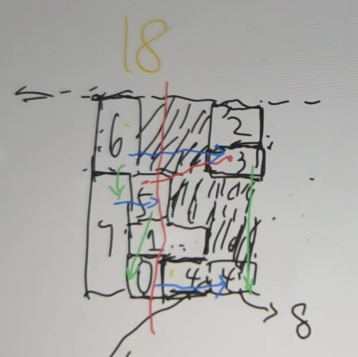 18
6 2
3
5
7 1
0 4
8